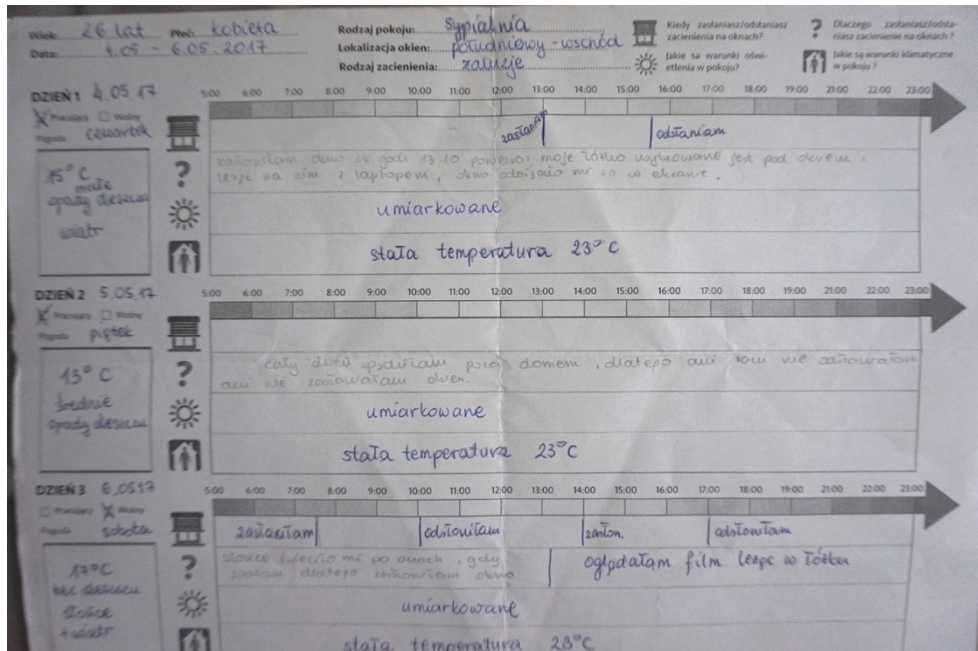 Wiek: 26 lat Płeć: kobieta
Data: 4.05 - 6.05.2017
Rodzaj pokoju: sypialnia
Lokalizacja okien: południowy-wschód
Rodzaj zacienienia: żaluzje
Kiedy zasłaniasz/odsłaniasz
zacienienia na oknach?
Jakie sa warunki oświ-
etlenia w pokoju?
Dlaczego zasłaniasz/odsła-
niasz zacienienie na oknach ?
Jakie są warunki klimatyczne
w pokoju ?
DZIEŃ 1 4.05.17
Pracujący Wolny
Pogoda czwartek
5:00 6:00 7:00 8:00 9:00 10:00 11:00 12:00 13:00 14:00 15:00 16:00 17:00 18:00 19:00 20:00 21:00 22:00 23:00
15° C
małe
opady deszczu
wiatr
zasłaniam odsłaniam
zasłoniłam okno ok godz 13.10 ponieważ moje łóżko usytuowane jest pod oknem,
leżąc na nim z laptopem, okno odbijało mi się w ekranie.
umiarkowane
stała temperatura 23° C
DZIEŃ 2 5.05.17
Pracujący Wolny
Pogoda piątek
5:00 6:00 7:00 8:00 9:00 10:00 11:00 12:00 13:00 14:00 15:00 16:00 17:00 18:00 19:00 20:00 21:00 22:00 23:00
13° C
średnie
opady deszczu
cały dzień spędziłam poza domem, dlatego ani nie
ani nie okien.
umiarkowane
stała temperatura 23°C
DZIEŃ 3 6.0517
Pracujący Wolny
Pogoda sobota
5:00 6:00 7:00 8:00 9:00 10:00 11:00 12:00 13:00 14:00 15:00 16:00 17:00 18:00 19:00 20:00 21:00 22:00 23:00
17°C
bez deszczu
słońce
+ wiatr
zasłaniam odsłoniłam zasłon. odsłoniłam
słońce świeciło mi po oczach, gdy
spałam dlatego zasłoniłam okno
oglądałam film leżąc w łóżku
umiarkowane
stała temperatura 23°C